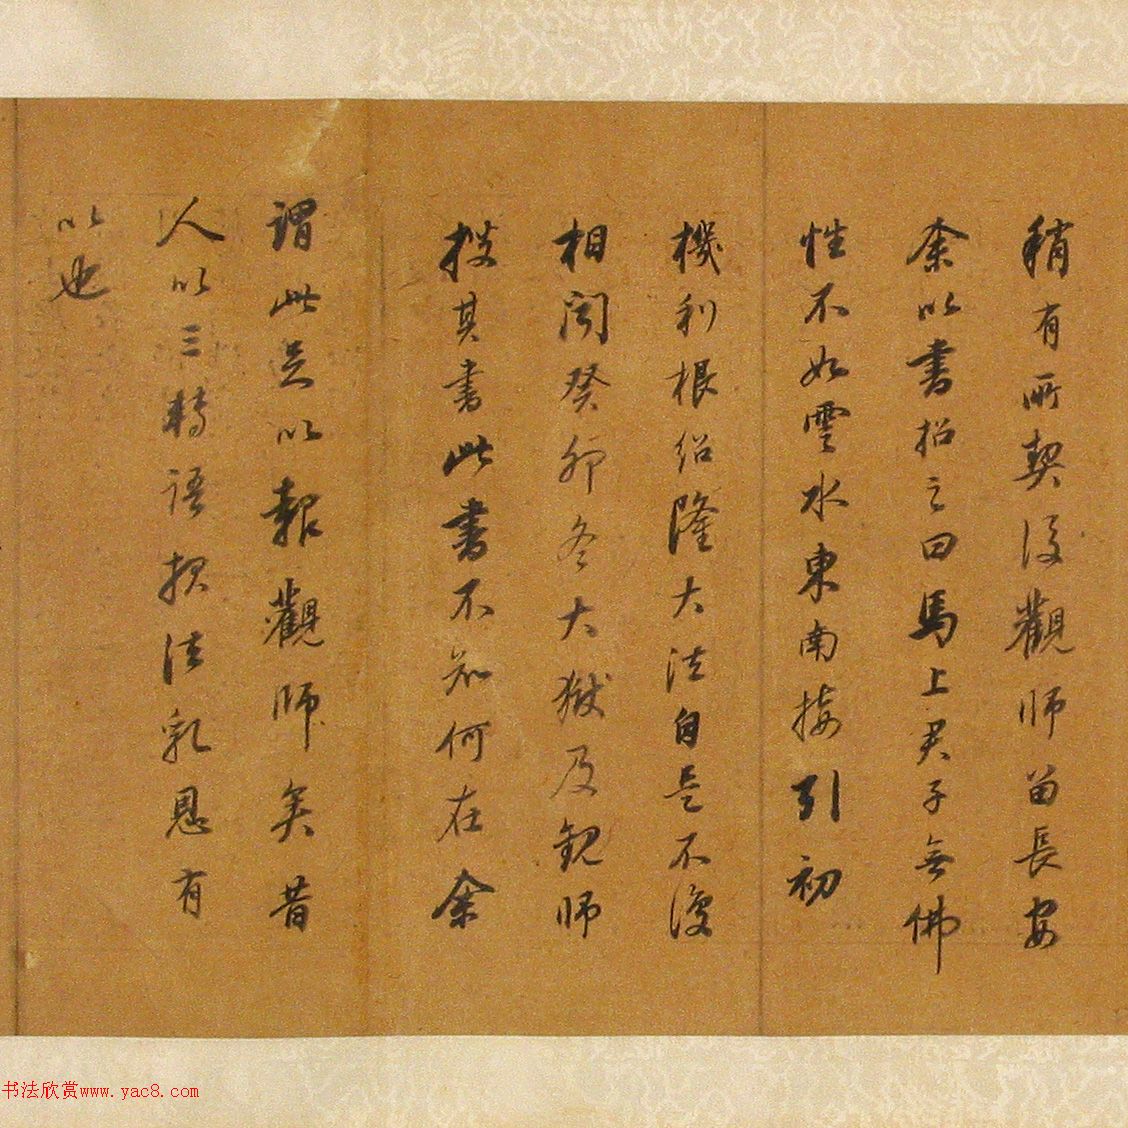 稍有所契後觀師留長安
余以書招之曰馬上君子無佛
性不如雲水東南接引初
機利根紹隆大法自是不復
相聞癸卯冬大獄及觀師
授其書此書不知何在余
謂此足以報觀師矣昔
人以三轉語報法乳恩有
以也
书法欣赏www.yac8.com